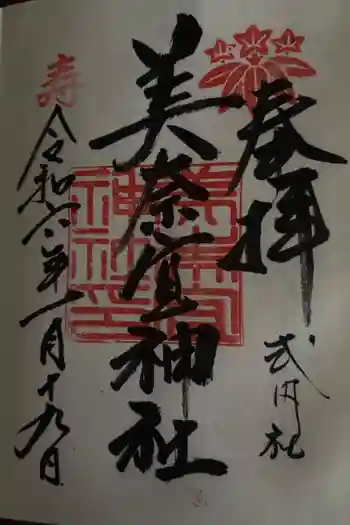 奉拝
式内社
美奈宜神社
寿
令和六年一月十九日